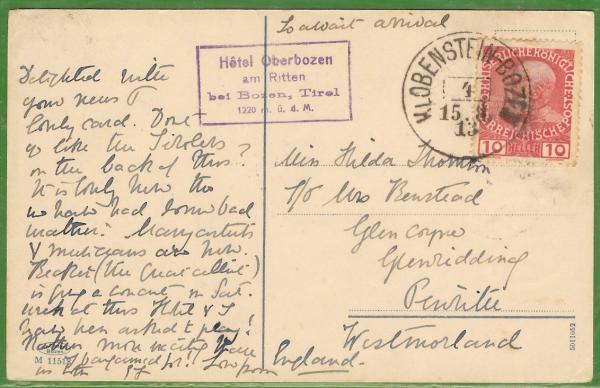 To await arrival
Hôtel Oberbozen
am Ritten
bei Bozen, Tirol
1220 m. ü. d. M.
KLOBENSTEIN-BOZEN
15
13
10 HELLER 10
Delighted with
your news &
lovely card. Don't
you like the Tirolers
on the back of this?
It is lovely here tho
we have had some bad
weather. Many artists
& musicians are here.
Becker (the great cellist)
is giving a concert on Sat.
week at this Hotel & I
have been asked to play!
Rather more exciting than
I bargained for! Love from
M 11518
Miss Hilda
c/o Mrs Benstead
Glencoyne
Glenridding
Penrith
Westmorland
England.
5011052